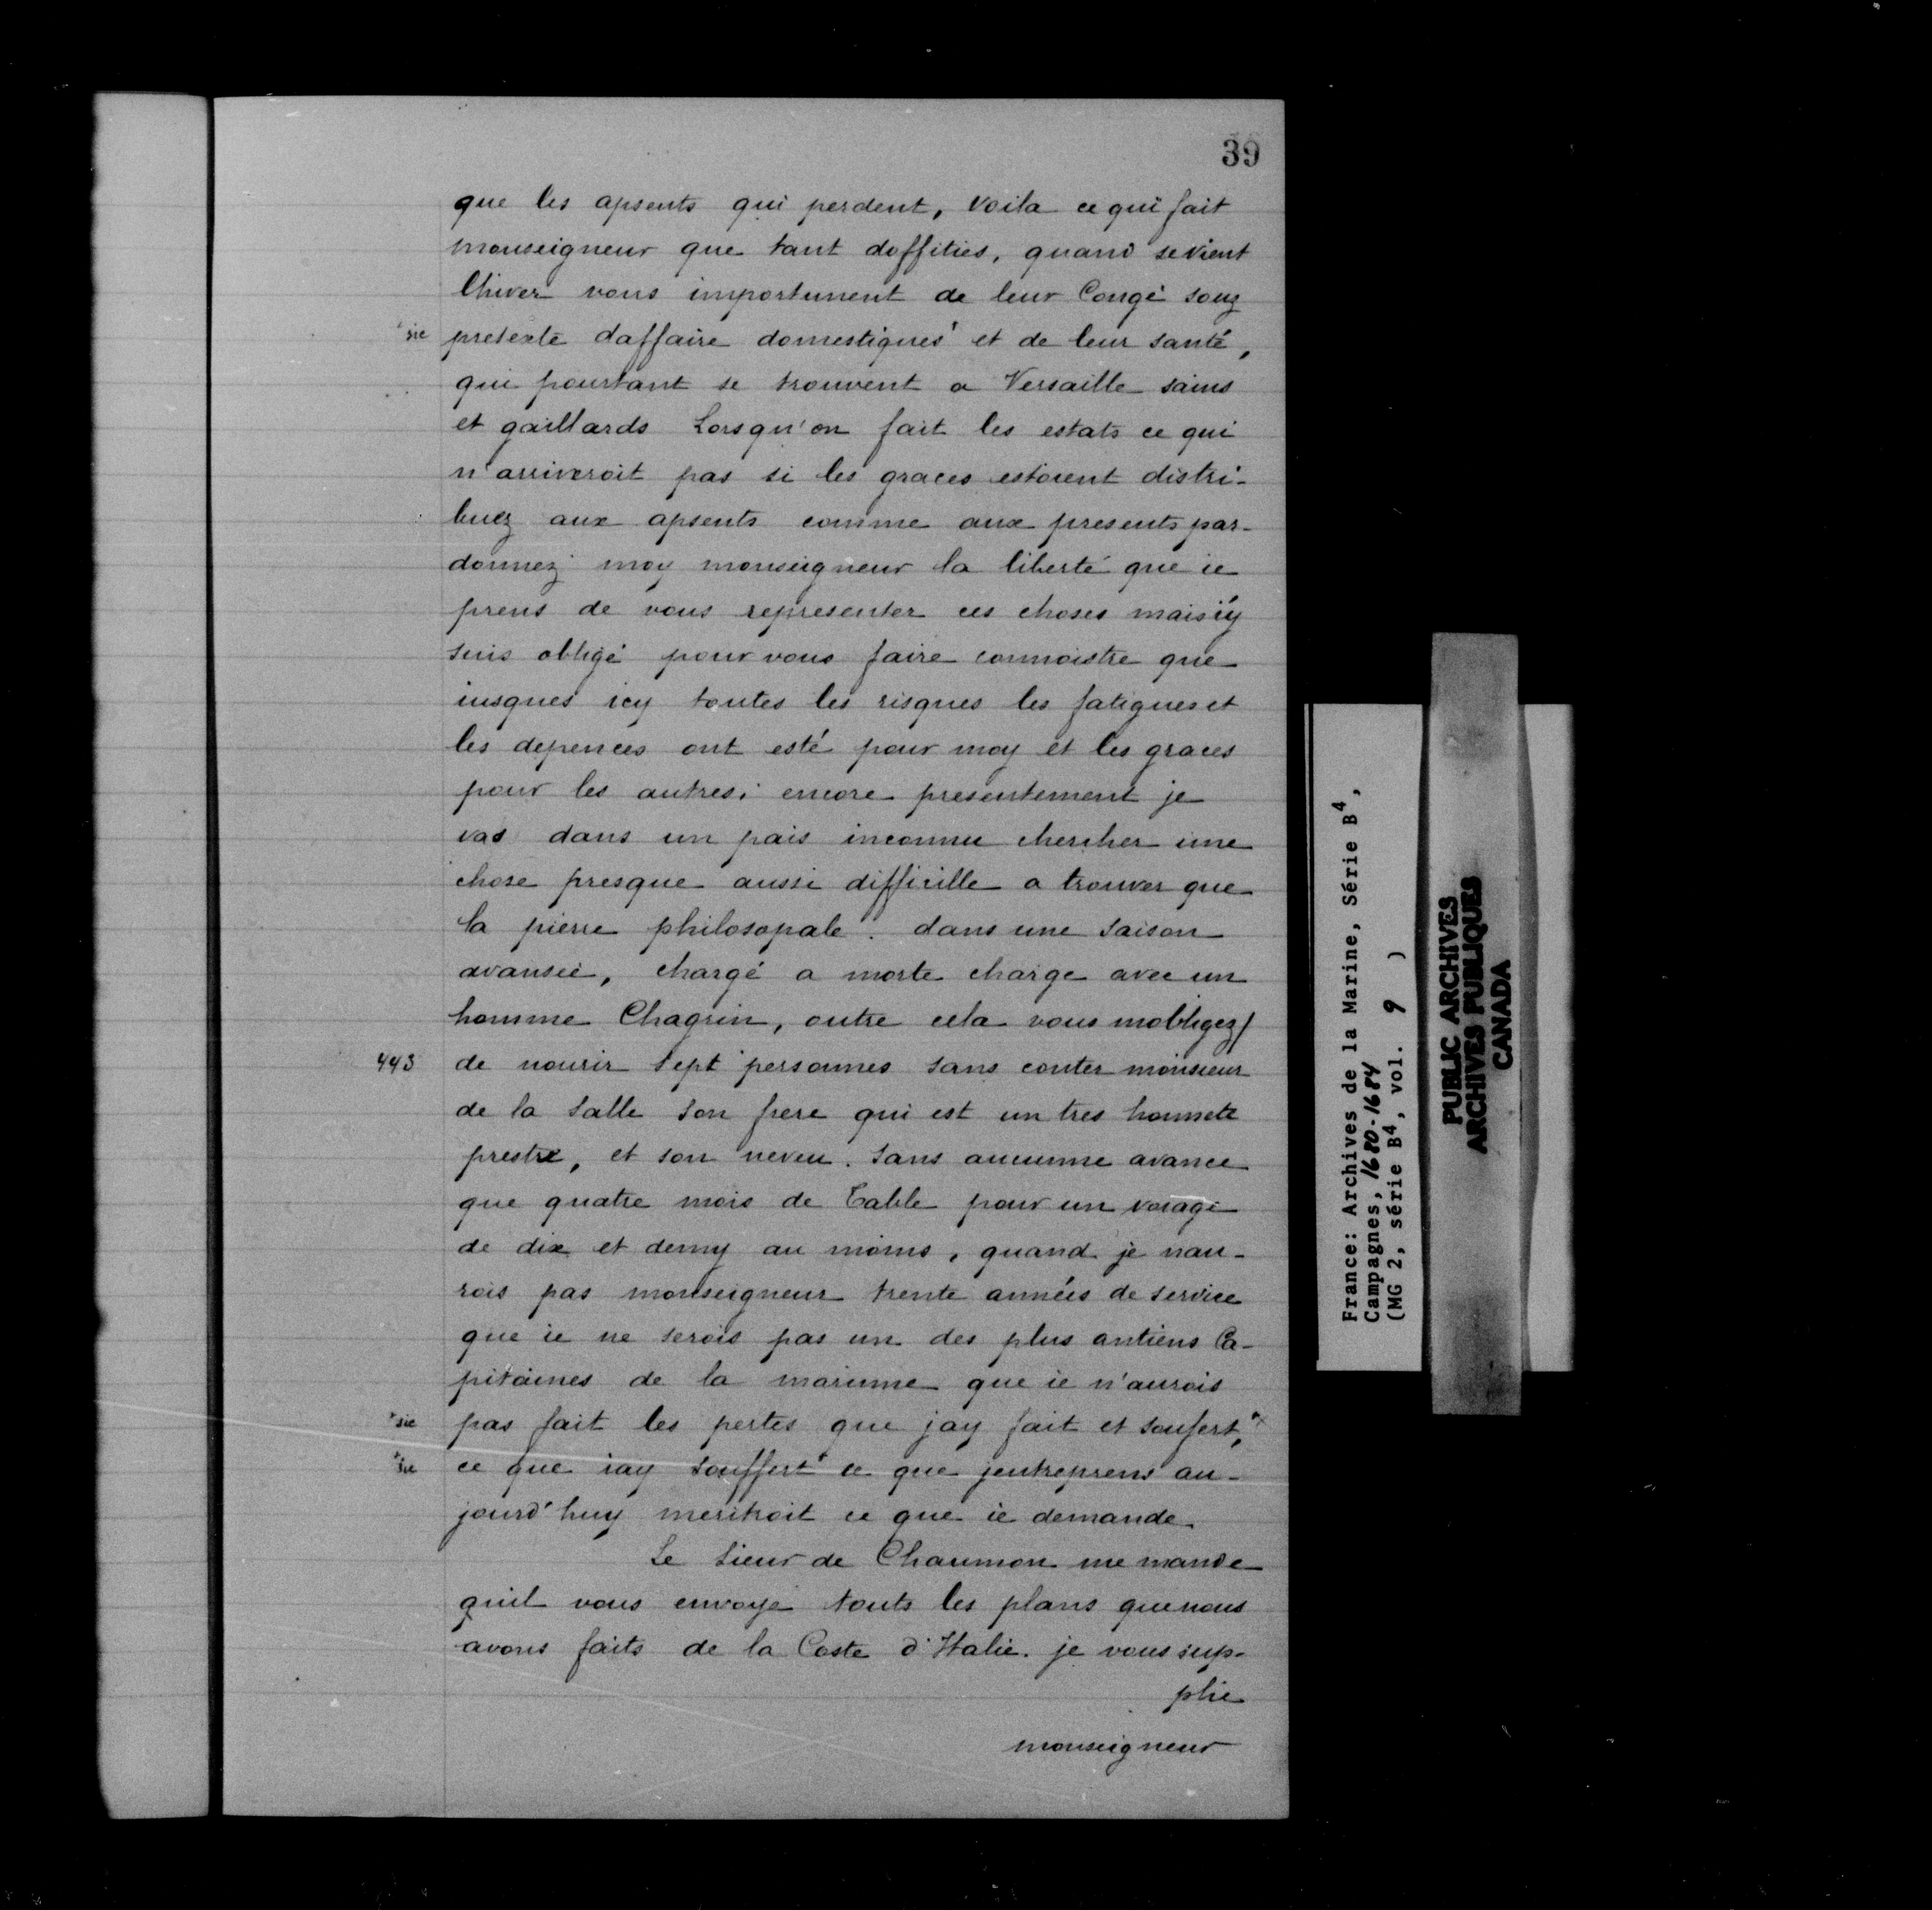 39
que les apsents qui perdent, voila ce qui fait
monseigneur que tant doffitiés, quand se vient
lhiver vous importunent de leur Congé souz
*sic pretexte daffaire domestiques* et de leur santé,
qui pourtant se trouvent a Versaille sains
et gaillards Lorsqu'on fait les estats ce qui
n'arriveroit pas si les graces estoient distri-
buez aux apsents comme aux presents par-
donnez moy monseigneur la liberté que ie
prens de vous representer ces choses mais iy
suis obligé pour vous faire connoistre que
iusques icy toutes les risques les fatigues et
les depences ont esté pour moy et les graces
pour les autres; encore presentement je
vas dans un païs inconnu chercher une
chose presque aussi difficille a trouver que
la pierre philosopale. dans une saison
avansée, chargé a morte charge avec un
homme Chagrin, outre cela vous mobligez/
443 de nourir sept personnes sans conter monsieur
de la Salle son frere qui est un tres honnete
prestre, et son neveu. sans aucunne avance
que quatre mois de Table pour un voiage
de dix et demy au moins, quand je nau-
rois pas monseigneur trente années de service
que ie ne serois pas un des plus antiens Ca-
pitaines de la marinne que ie n'aurois
*sic pas fait les pertes que jay fait et soufert,*
*sic ce que iay souffert* ce que jentreprens au-
jourd'huy meritroit ce que ie demande.
Le Sieur de Chaumon me mande
quil vous envoye touts les plans que nous
avons faits de la Coste d'Italie. je vous sup-
plie
monseigneur
France: Archives de la Marine, Série B4,
Campagnes, 1680-1684
(MG 2, série B4, vol. 9 )
PUBLIC ARCHIVES
ARCHIVES PUBLIQUES
CANADA